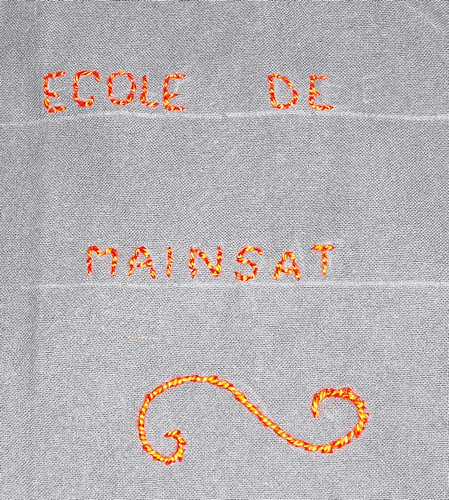 ECOLE DE
MAINSAT